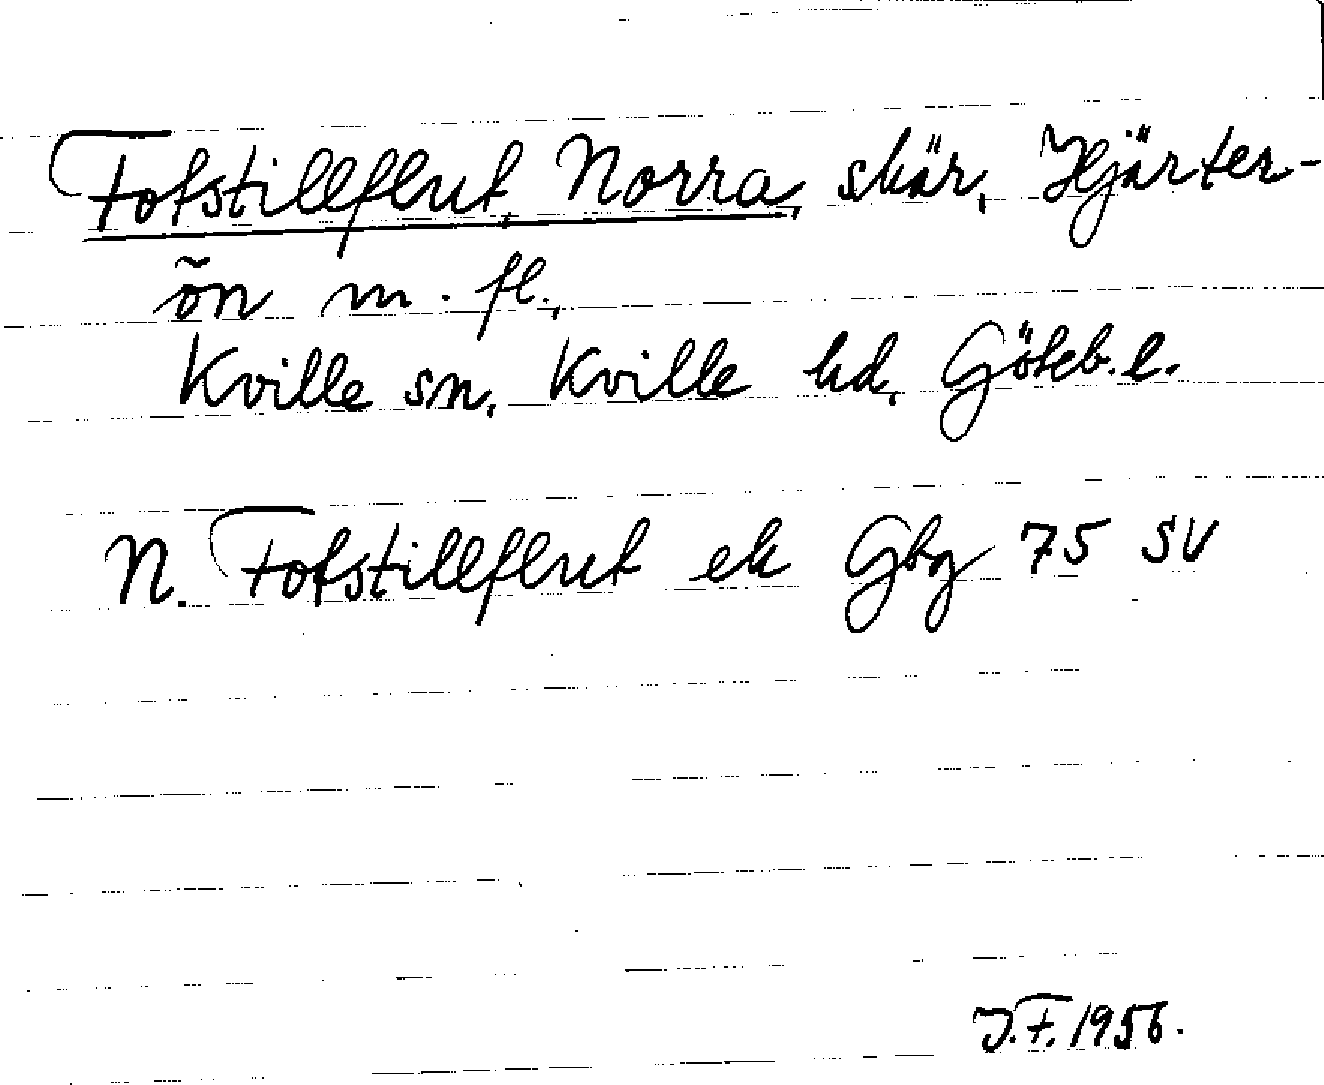 Fotstillflut, Norra, skär, Hjärter-
ön m. fl.,
Kville sn, Kville hd, Göteb. l.
N. Fotstillflut ek Gbg 75 SV
J.F. 1956.